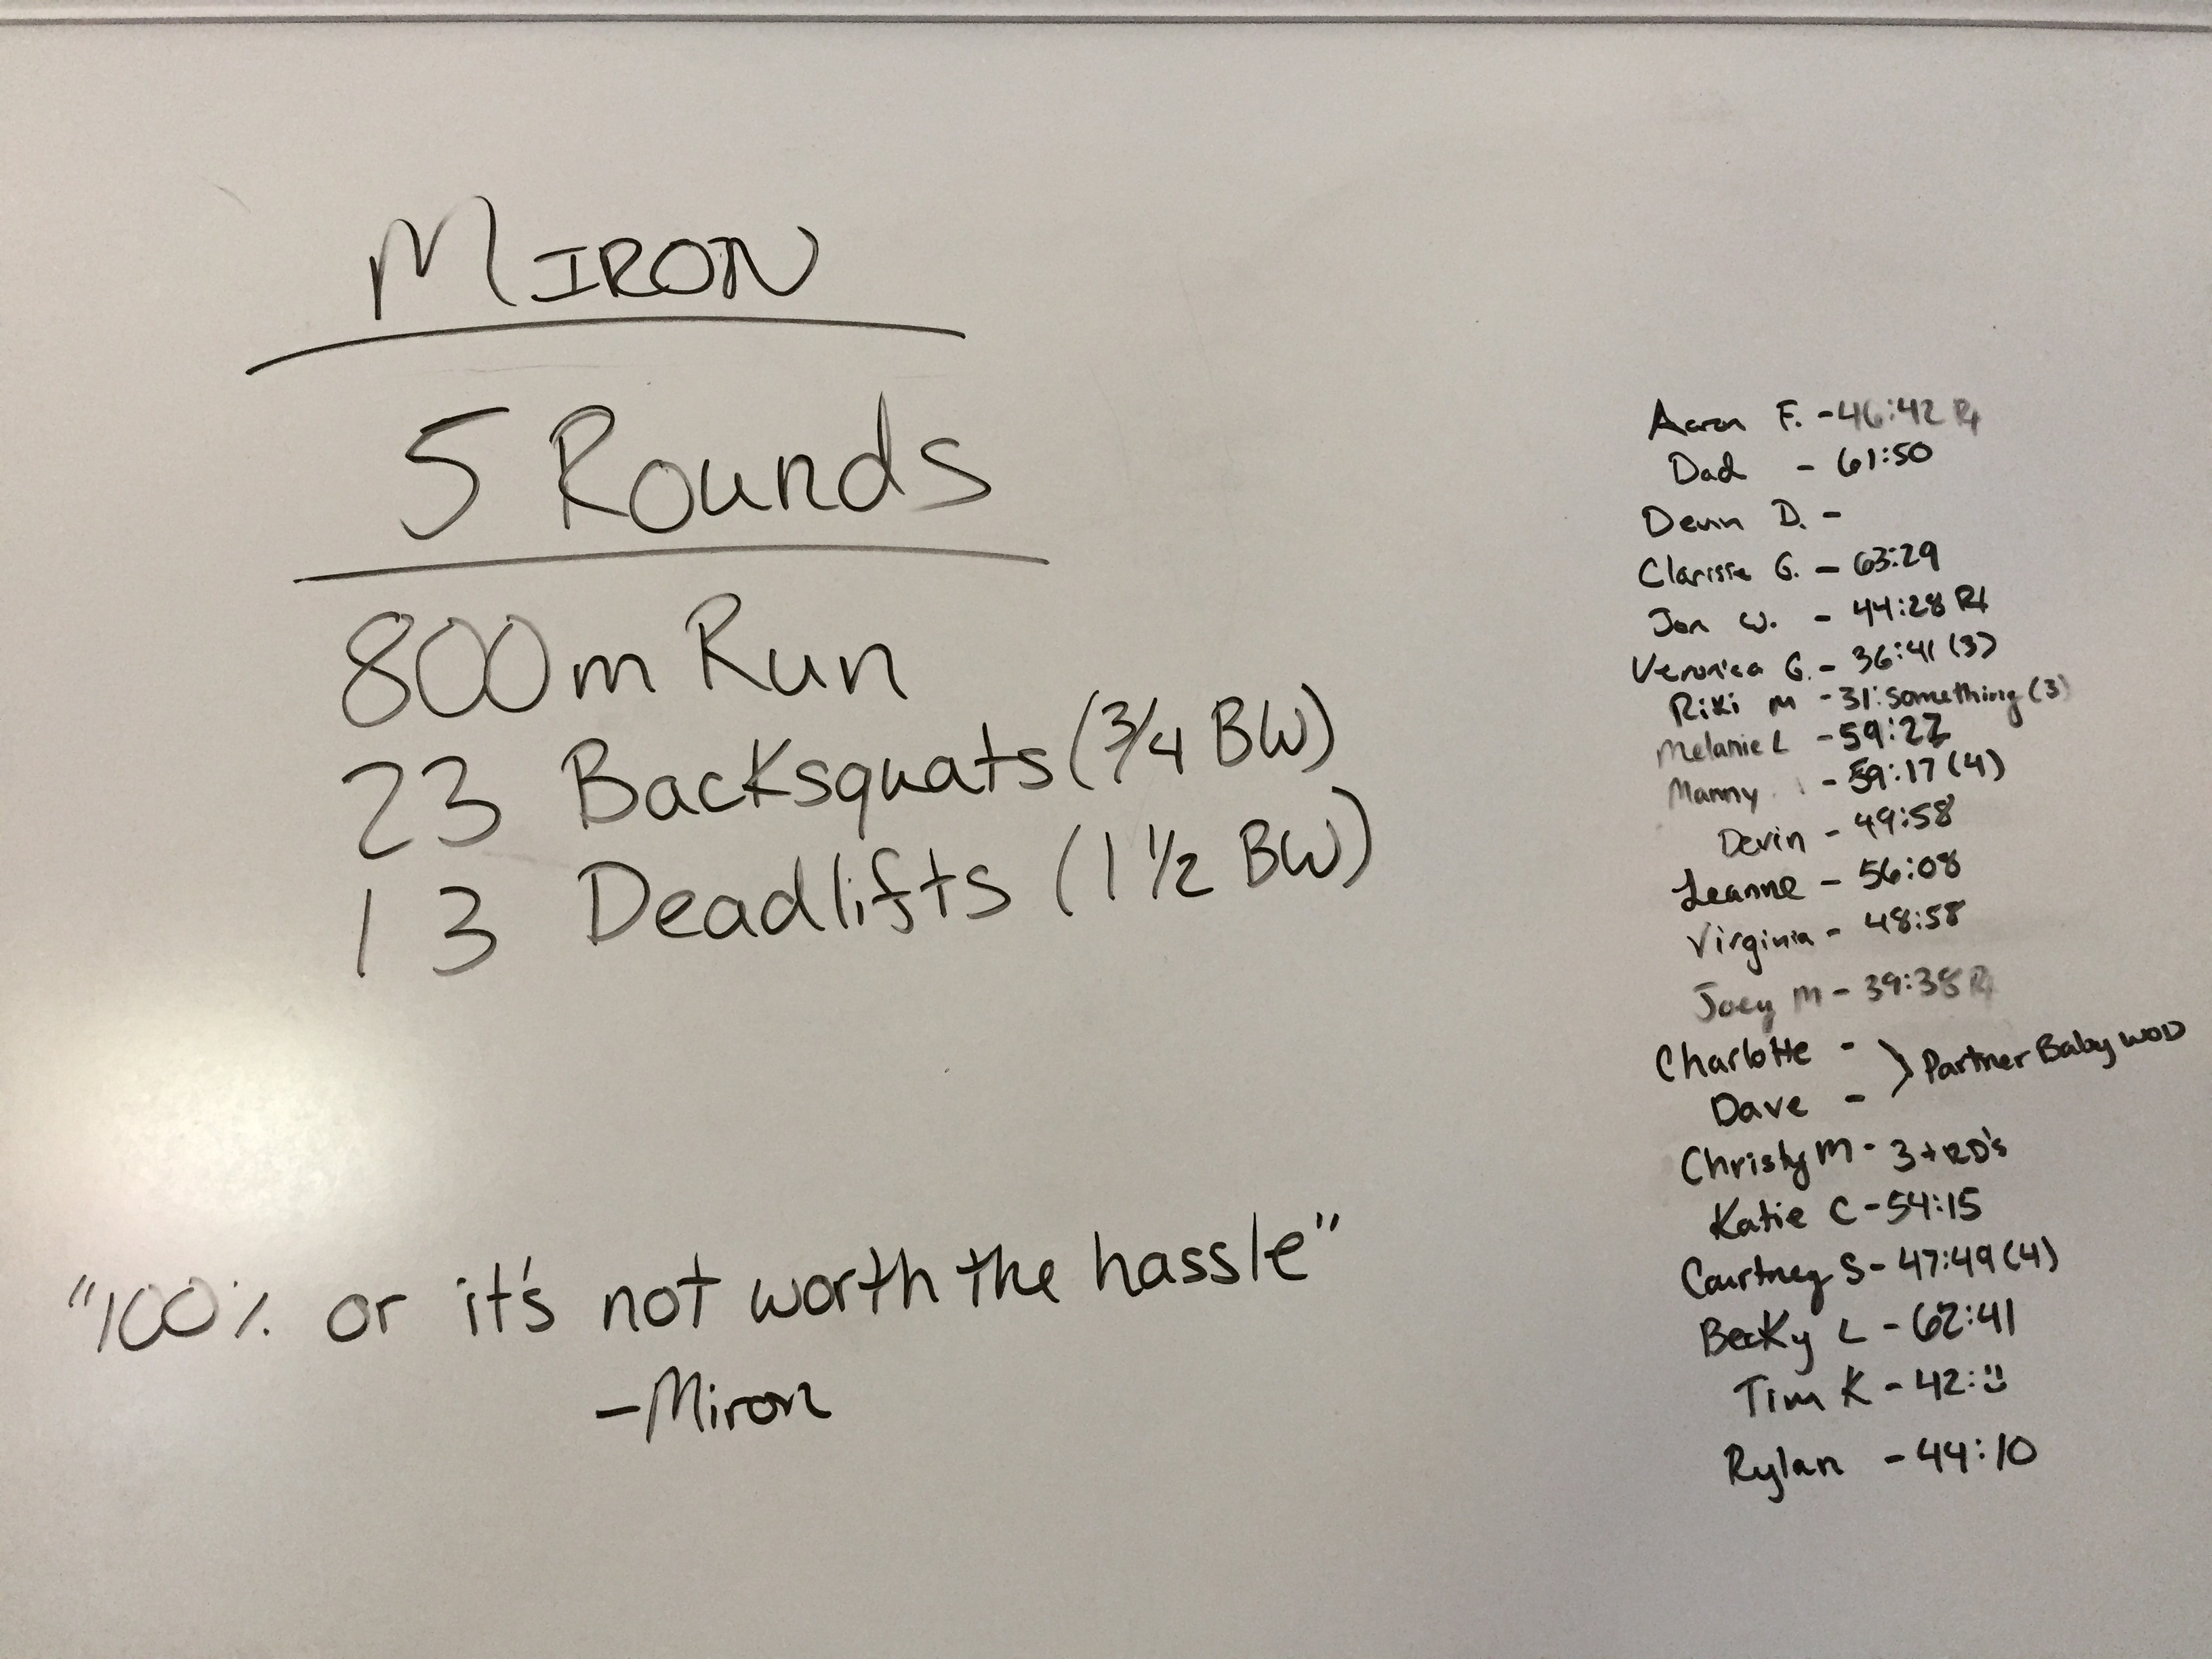 MIRON
5 Rounds
800m Run
23 Backsquats (3/4 BW)
13 Deadlifts (1 1/2 BW)
"100% or it's not worth the hassle"
-Miron
Aaron F. - 46:42 Rx
Dad - 61:50
Devin D. -
Clarisse G. - 63:29
Jon W. - 44:28 Rx
Veronica G. - 36:41 (3)
Riki M - 31:something (3)
Melanie L - 59:22
Manny - 59:17 (4)
Devin - 49:58
Leanne - 56:08
Virginia - 48:58
Joey M - 39:38 Rx
Charlotte - } Partner Baby WOD
Dave -
Christy M - 3+RD's
Katie C - 54:15
Courtney S - 47:49 (4)
Becky L - 62:41
Tim K - 42:🙂
Rylan - 44:10